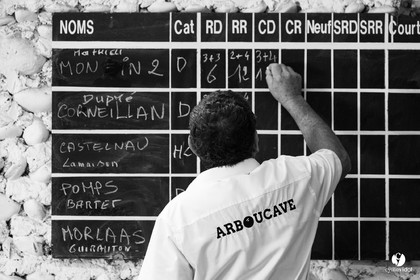 NOMS Cat RD RR CD CR Neuf SRD SRR Court
Mathieu
MON IN 2 D 3+3 2+4 3+4
6 12 1
Dupré
CORNEILLAN D
CASTELNAU H
Lamaison
POMPS
BARTET
MORLAAS
GUIRAUTON
ARBOUCAVE